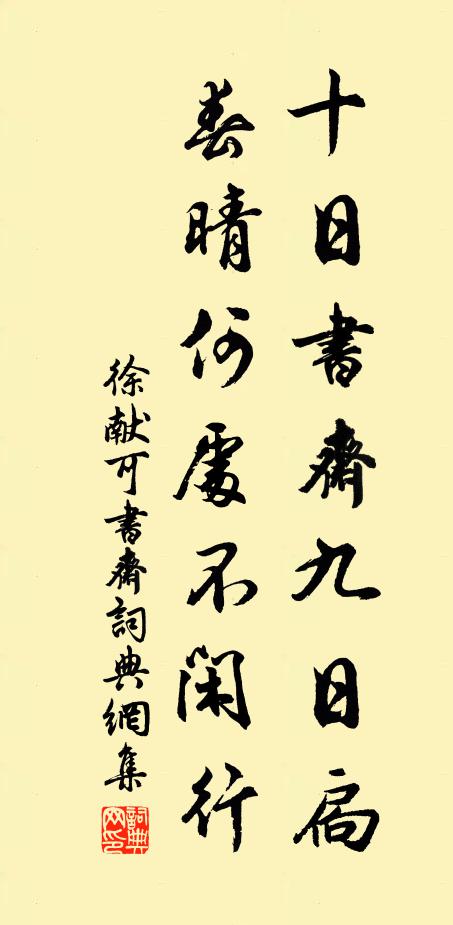 十日書齋九日扃
春晴何處不閑行
徐献可書齋詞典網集
詞典网印